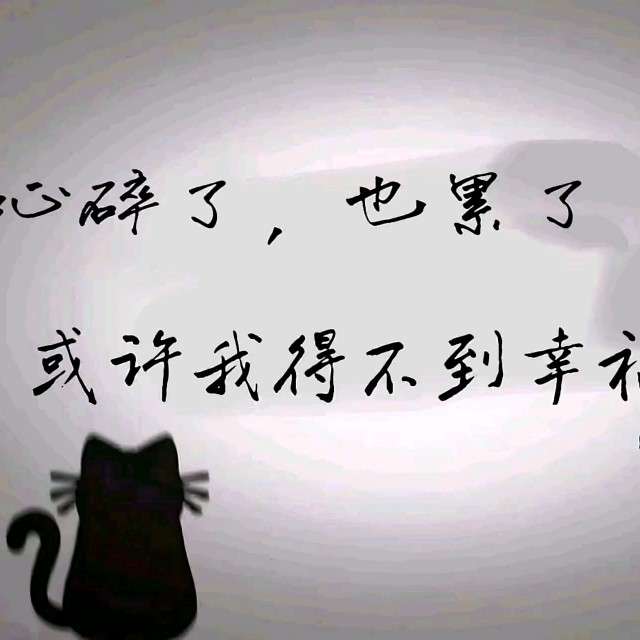 心碎了，也累了
或许我得不到幸福